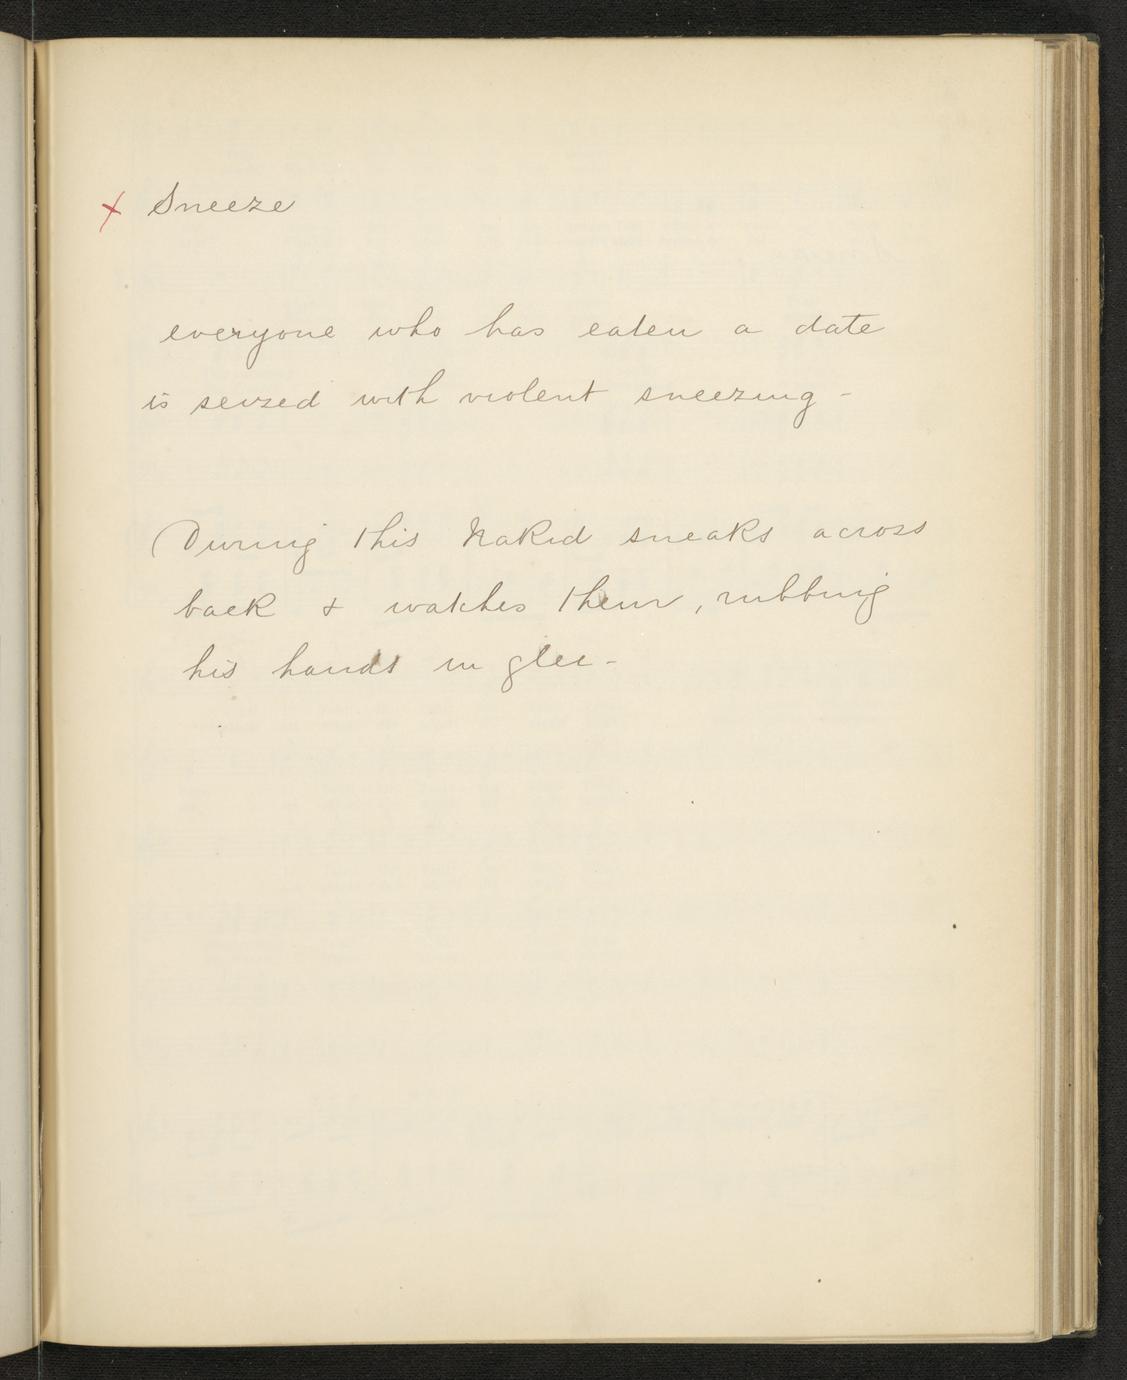 x Sneeze
everyone who has eaten a date
is seized with violent sneezing -
During this Nakid sneaks across
back & watches them, rubbing
his hands in glee -